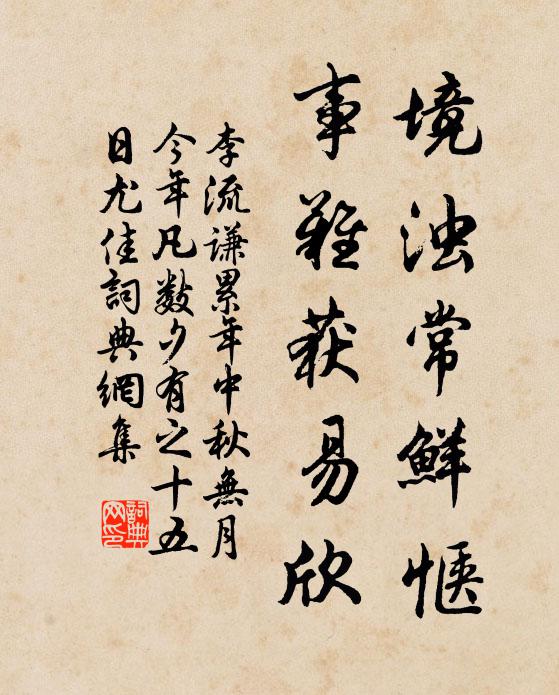 境浊常鮮惬
事難获易欣
李流謙累年中秋無月
今年凡数夕有之十五
日尤佳詞典網集
詞典
网印